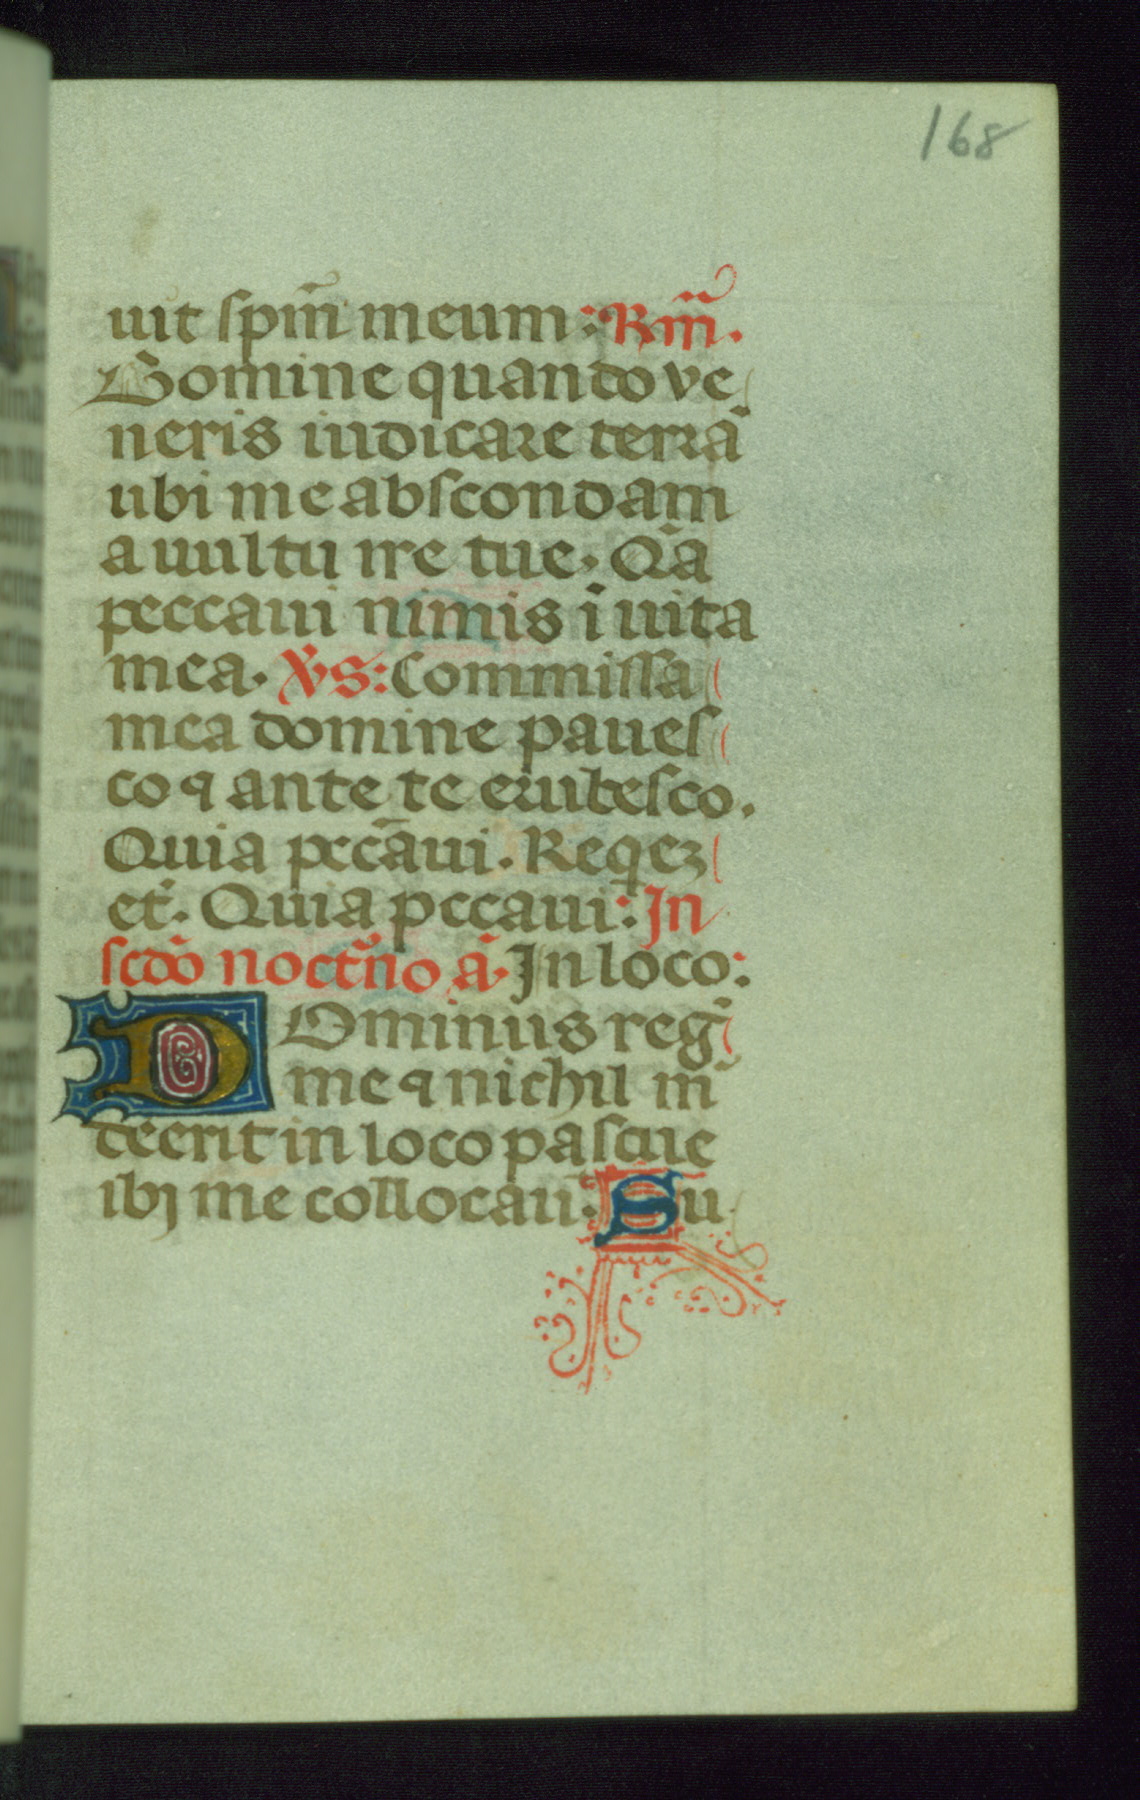 168
uit sp̄m meum: R̄m̄.
Domine quando ve
neris iudicare terrā
ubi me abscondam
a uultu ire tue. Qā
peccaui nimis ī uita
mea. V̄s: Commissa
mea domine paues
co ⁊ ante te erubesco.
Quia pccāui. Reqez
et̄. Quia pccaui: In
scd̄o noct̄no ā. In loco:
DOminus reḡ
me ⁊ nichil m̄
deerit in loco pascue
ibi me collocaū. Su